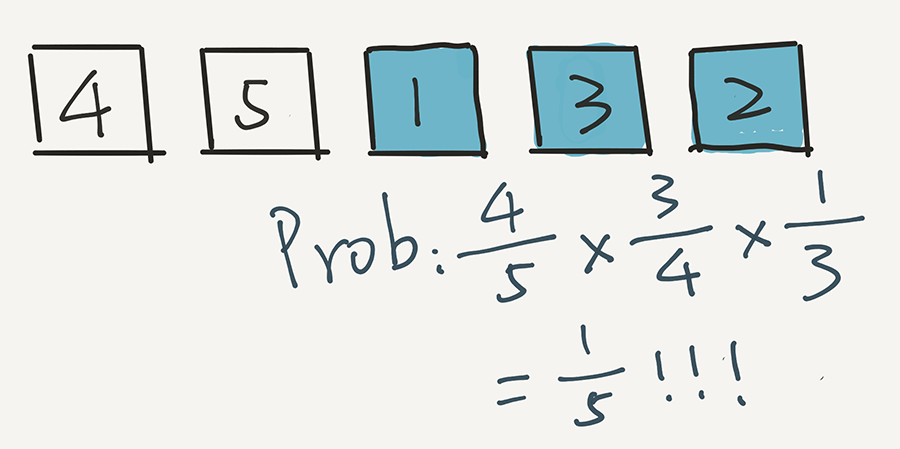 4 5 1 3 2
Prob: 4/5 × 3/4 × 1/3
= 1/5 !!!